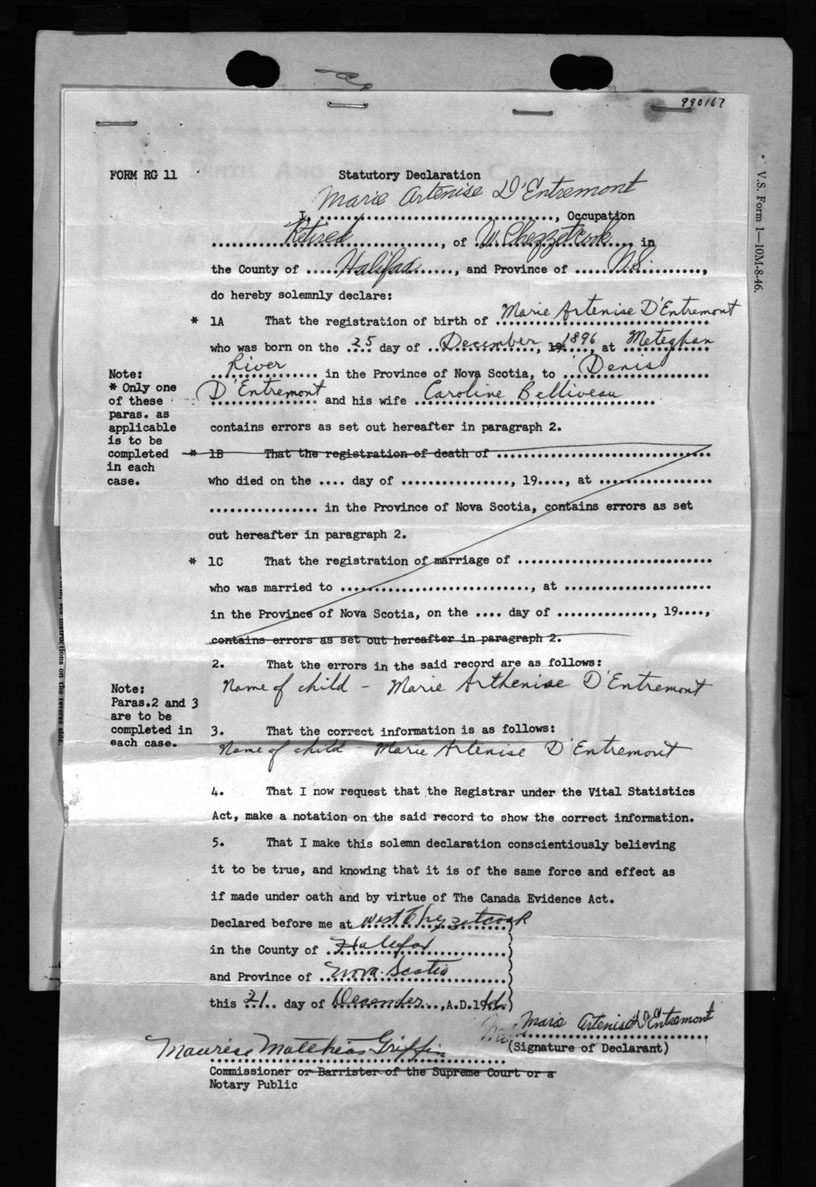 990167
FORM RG 11
Statutory Declaration
Marie Artenise D'Entremont
I, ..................................., Occupation
Retired, of W. Chezzetcook in
the County of Halifax, and Province of N.S.,
do hereby solemnly declare:
* 1A That the registration of birth of Marie Artenise D'Entremont
who was born on the 25 day of December, 19 1896, at Meteghan
River in the Province of Nova Scotia, to Denis
D'Entremont and his wife Caroline Belliveau
contains errors as set out hereafter in paragraph 2.
Note:
* Only one
of these
paras. as
applicable
is to be
completed
in each
case.
* 1B That the registration of death of ...................................
who died on the .... day of ................, 19...., at ..................
................ in the Province of Nova Scotia, contains errors as set
out hereafter in paragraph 2.
* 1C That the registration of marriage of ...............................
who was married to .............................., at .......................
in the Province of Nova Scotia, on the .... day of ..............., 19....,
contains errors as set out hereafter in paragraph 2.
2. That the errors in the said record are as follows:
Name of child - Marie Arthenise D'Entremont
Note:
Paras.2 and 3
are to be
completed in
each case.
3. That the correct information is as follows:
Name of child - Marie Artenise D'Entremont
4. That I now request that the Registrar under the Vital Statistics
Act, make a notation on the said record to show the correct information.
5. That I make this solemn declaration conscientiously believing
it to be true, and knowing that it is of the same force and effect as
if made under oath and by virtue of The Canada Evidence Act.
Declared before me at West Chezzetcook
in the County of Halifax
and Province of Nova Scotia
this 21 day of December, A.D.19
Marie Artenise D'Entremont
(Signature of Declarant)
Maurise Matthias Griffin
Commissioner or Barrister of the Supreme Court or a
Notary Public
V.S. Form 1—10M-8-46.